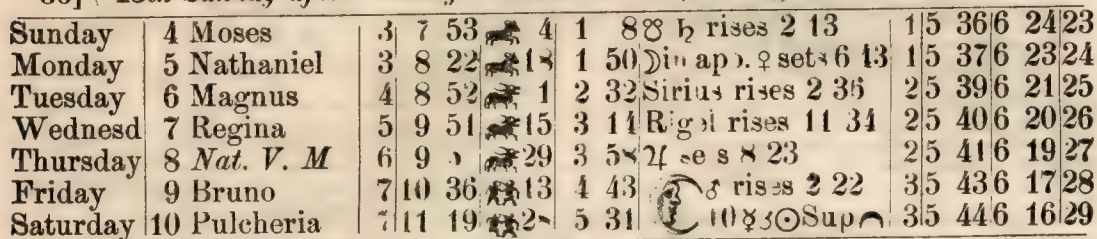 Sunday 4 Moses 3 7 53 4 1 8 ☍ ♄ rises 2 13 1 5 36 6 24 23
Monday 5 Nathaniel 3 8 22 18 1 50 ☽ in ap . ♀ sets 6 13 1 5 37 6 23 24
Tuesday 6 Magnus 4 8 52 1 2 32 Sirius rises 2 36 2 5 39 6 21 25
Wednesd 7 Regina 5 9 51 15 3 14 Rigel rises 11 34 2 5 40 6 20 26
Thursday 8 Nat. V. M 6 9 29 3 5 ♃ 8 23 2 5 41 6 19 27
Friday 9 Bruno 7 10 36 13 4 43 ♂ rises 2 22 3 5 43 6 17 28
Saturday 10 Pulcheria 7 11 19 5 31 10 ☿ ☌ ☉ Sup 3 5 44 6 16 29